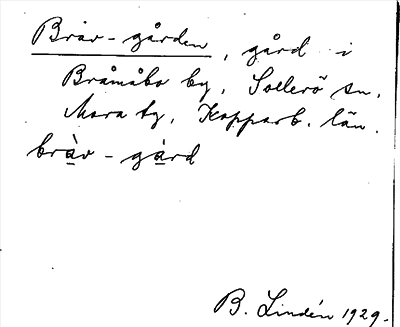 Bråv-gården, gård i
Bråmåbo by, Sollerö sn.
Mora tg, Kopparb. län.
bràv - gàrd
B. Lindén 1929.